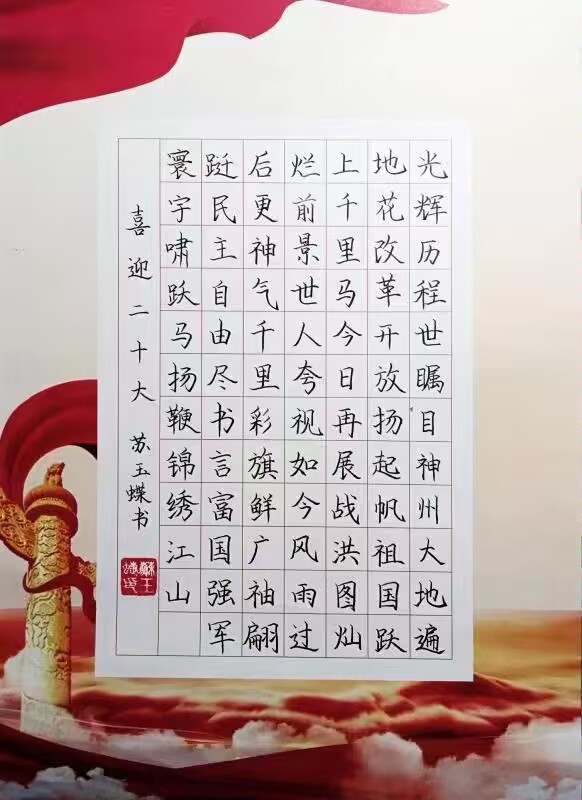 光辉历程世瞩目神州大地遍
地花改革开放扬起帆祖国跃
上千里马今日再展战洪图灿
烂前景世人夸视如今风雨过
后更神气千里彩旗鲜广袖翩
跹民主自由尽书言富国强军
寰宇啸跃马扬鞭锦绣江山
喜迎二十大 苏玉蝶书